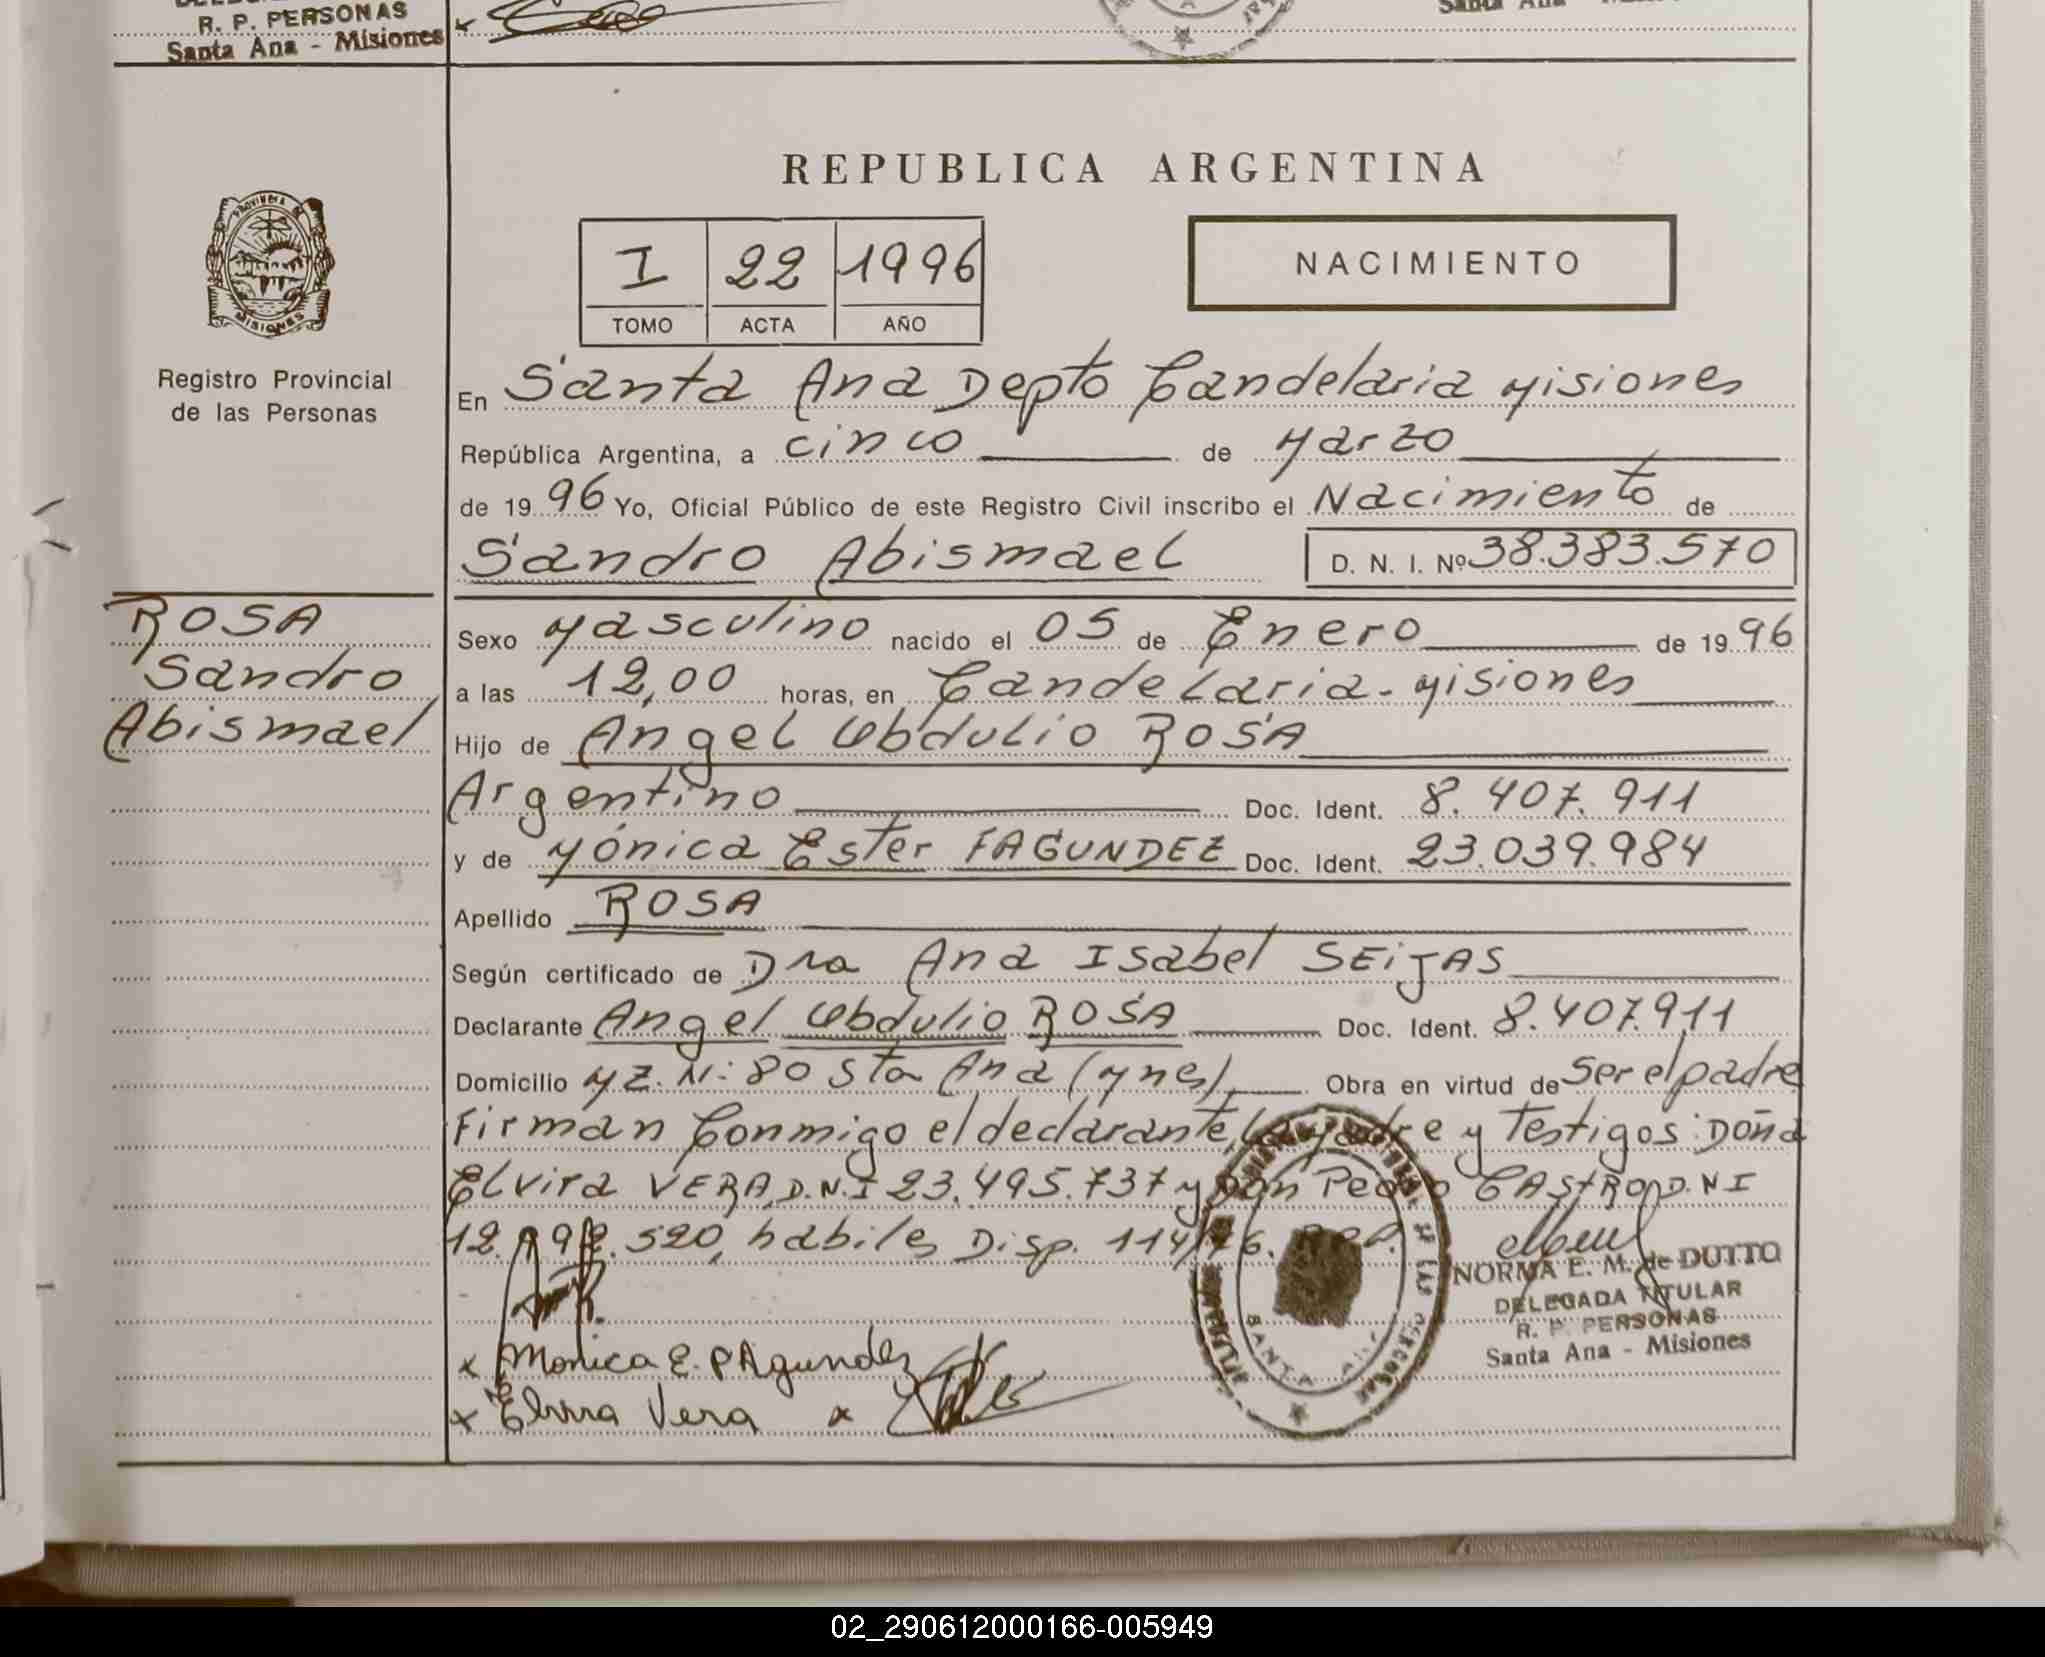 R. P. PERSONAS
Santa Ana - Misiones
REPUBLICA ARGENTINA
I 22 1996
TOMO ACTA AÑO
NACIMIENTO
PROVINCIA DE
MISIONES
Registro Provincial
de las Personas
En Santa Ana Depto Candelaria Misiones
República Argentina, a cinco de Marzo
de 1996 Yo, Oficial Público de este Registro Civil inscribo el Nacimiento de
Sandro Abismael D. N. I. Nº 38.383.570
ROSA
Sandro
Abismael
Sexo Masculino nacido el 05 de Enero de 1996
a las 12,00 horas, en Candelaria - Misiones
Hijo de Angel Obdulio ROSA
Argentino Doc. Ident. 8.407.911
y de Mónica Ester FAGUNDEZ Doc. Ident. 23.039.984
Apellido ROSA
Según certificado de Dra Ana Isabel SEIJAS
Declarante Angel Obdulio ROSA Doc. Ident. 8.407.911
Domicilio Mz. N: 80 Sta Ana (Mnes) Obra en virtud de Ser el padre
Firman Conmigo el declarante, la Madre y Testigos: Doña
Elvira VERA, D.N.I 23.495.737 y Don Pedro CASTRO, D.N I
12. 520, habiles Disp. 114/76.
NORMA E. M. de DUTTO
DELEGADA TITULAR
R. P. PERSONAS
Santa Ana - Misiones
x Monica E. FAgundez
x Elvira Vera x
SANTA ANA
02_290612000166-005949